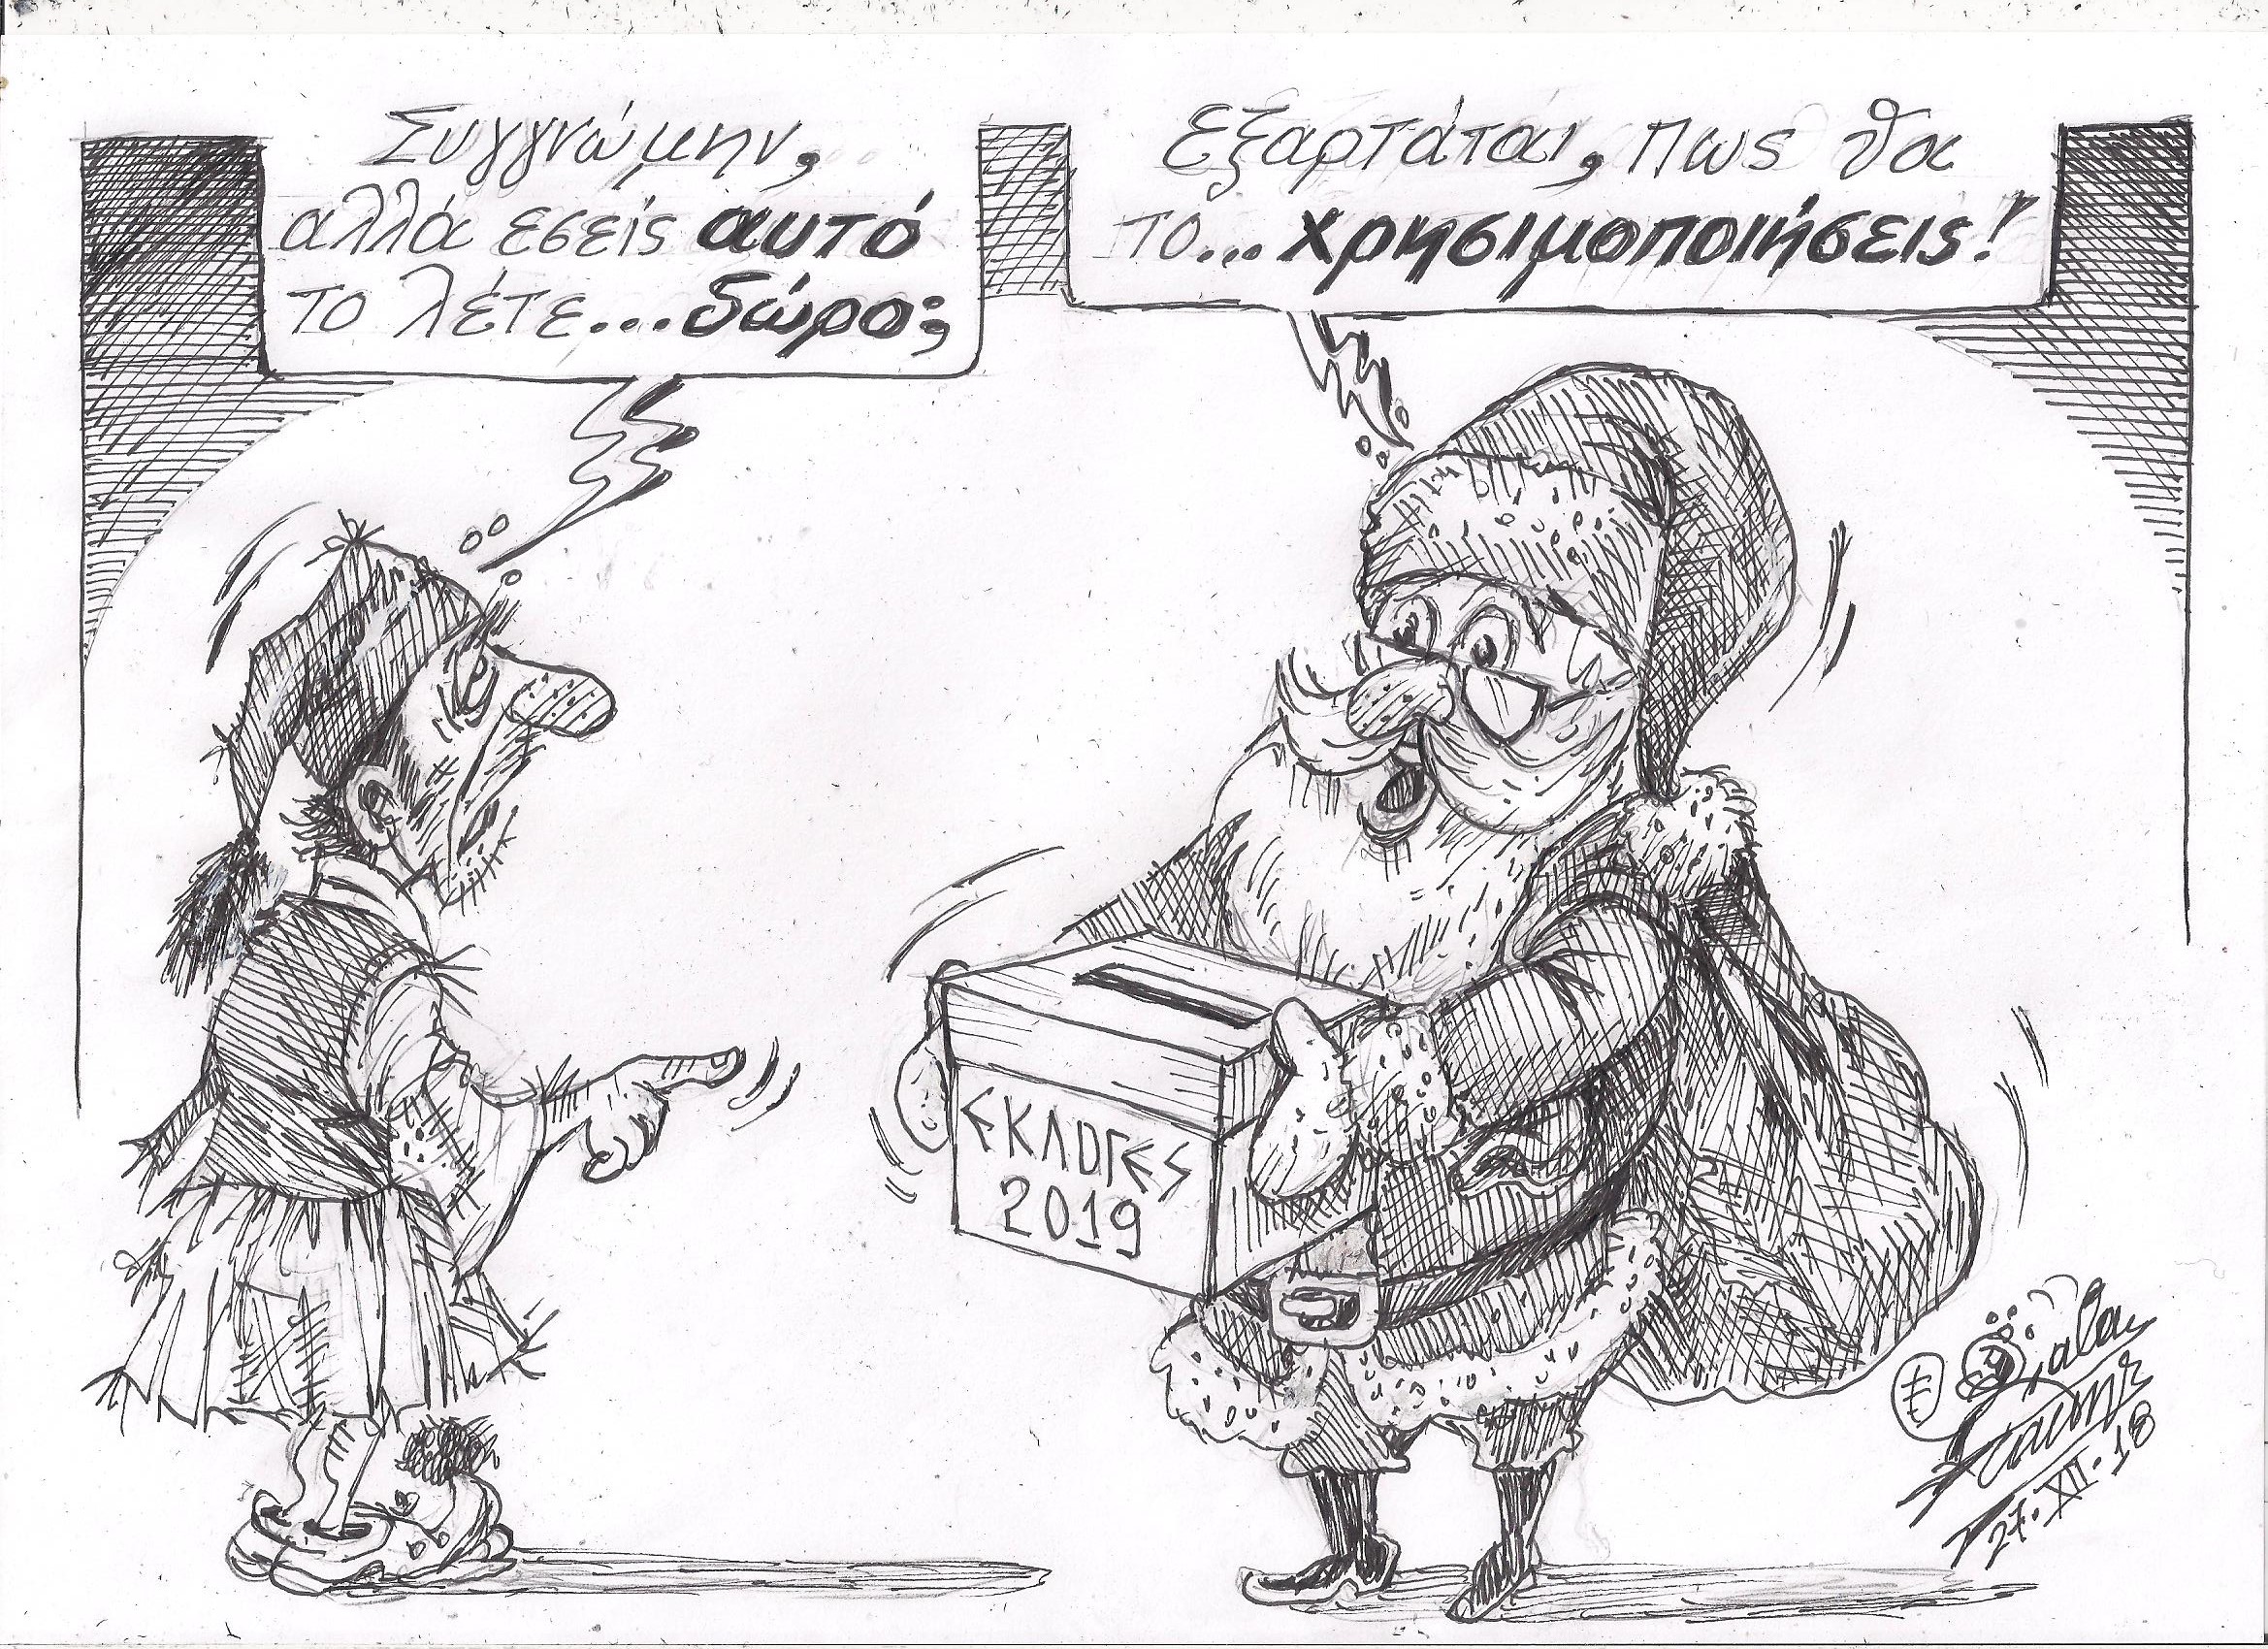 Συγγνώμην,
αλλά εσείς αυτό
το λέτε...δώρο;
Εξαρτάται, πως θα
το...χρησιμοποιήσεις!
ΕΚΛΟΓΕΣ
2019
27.XII.18